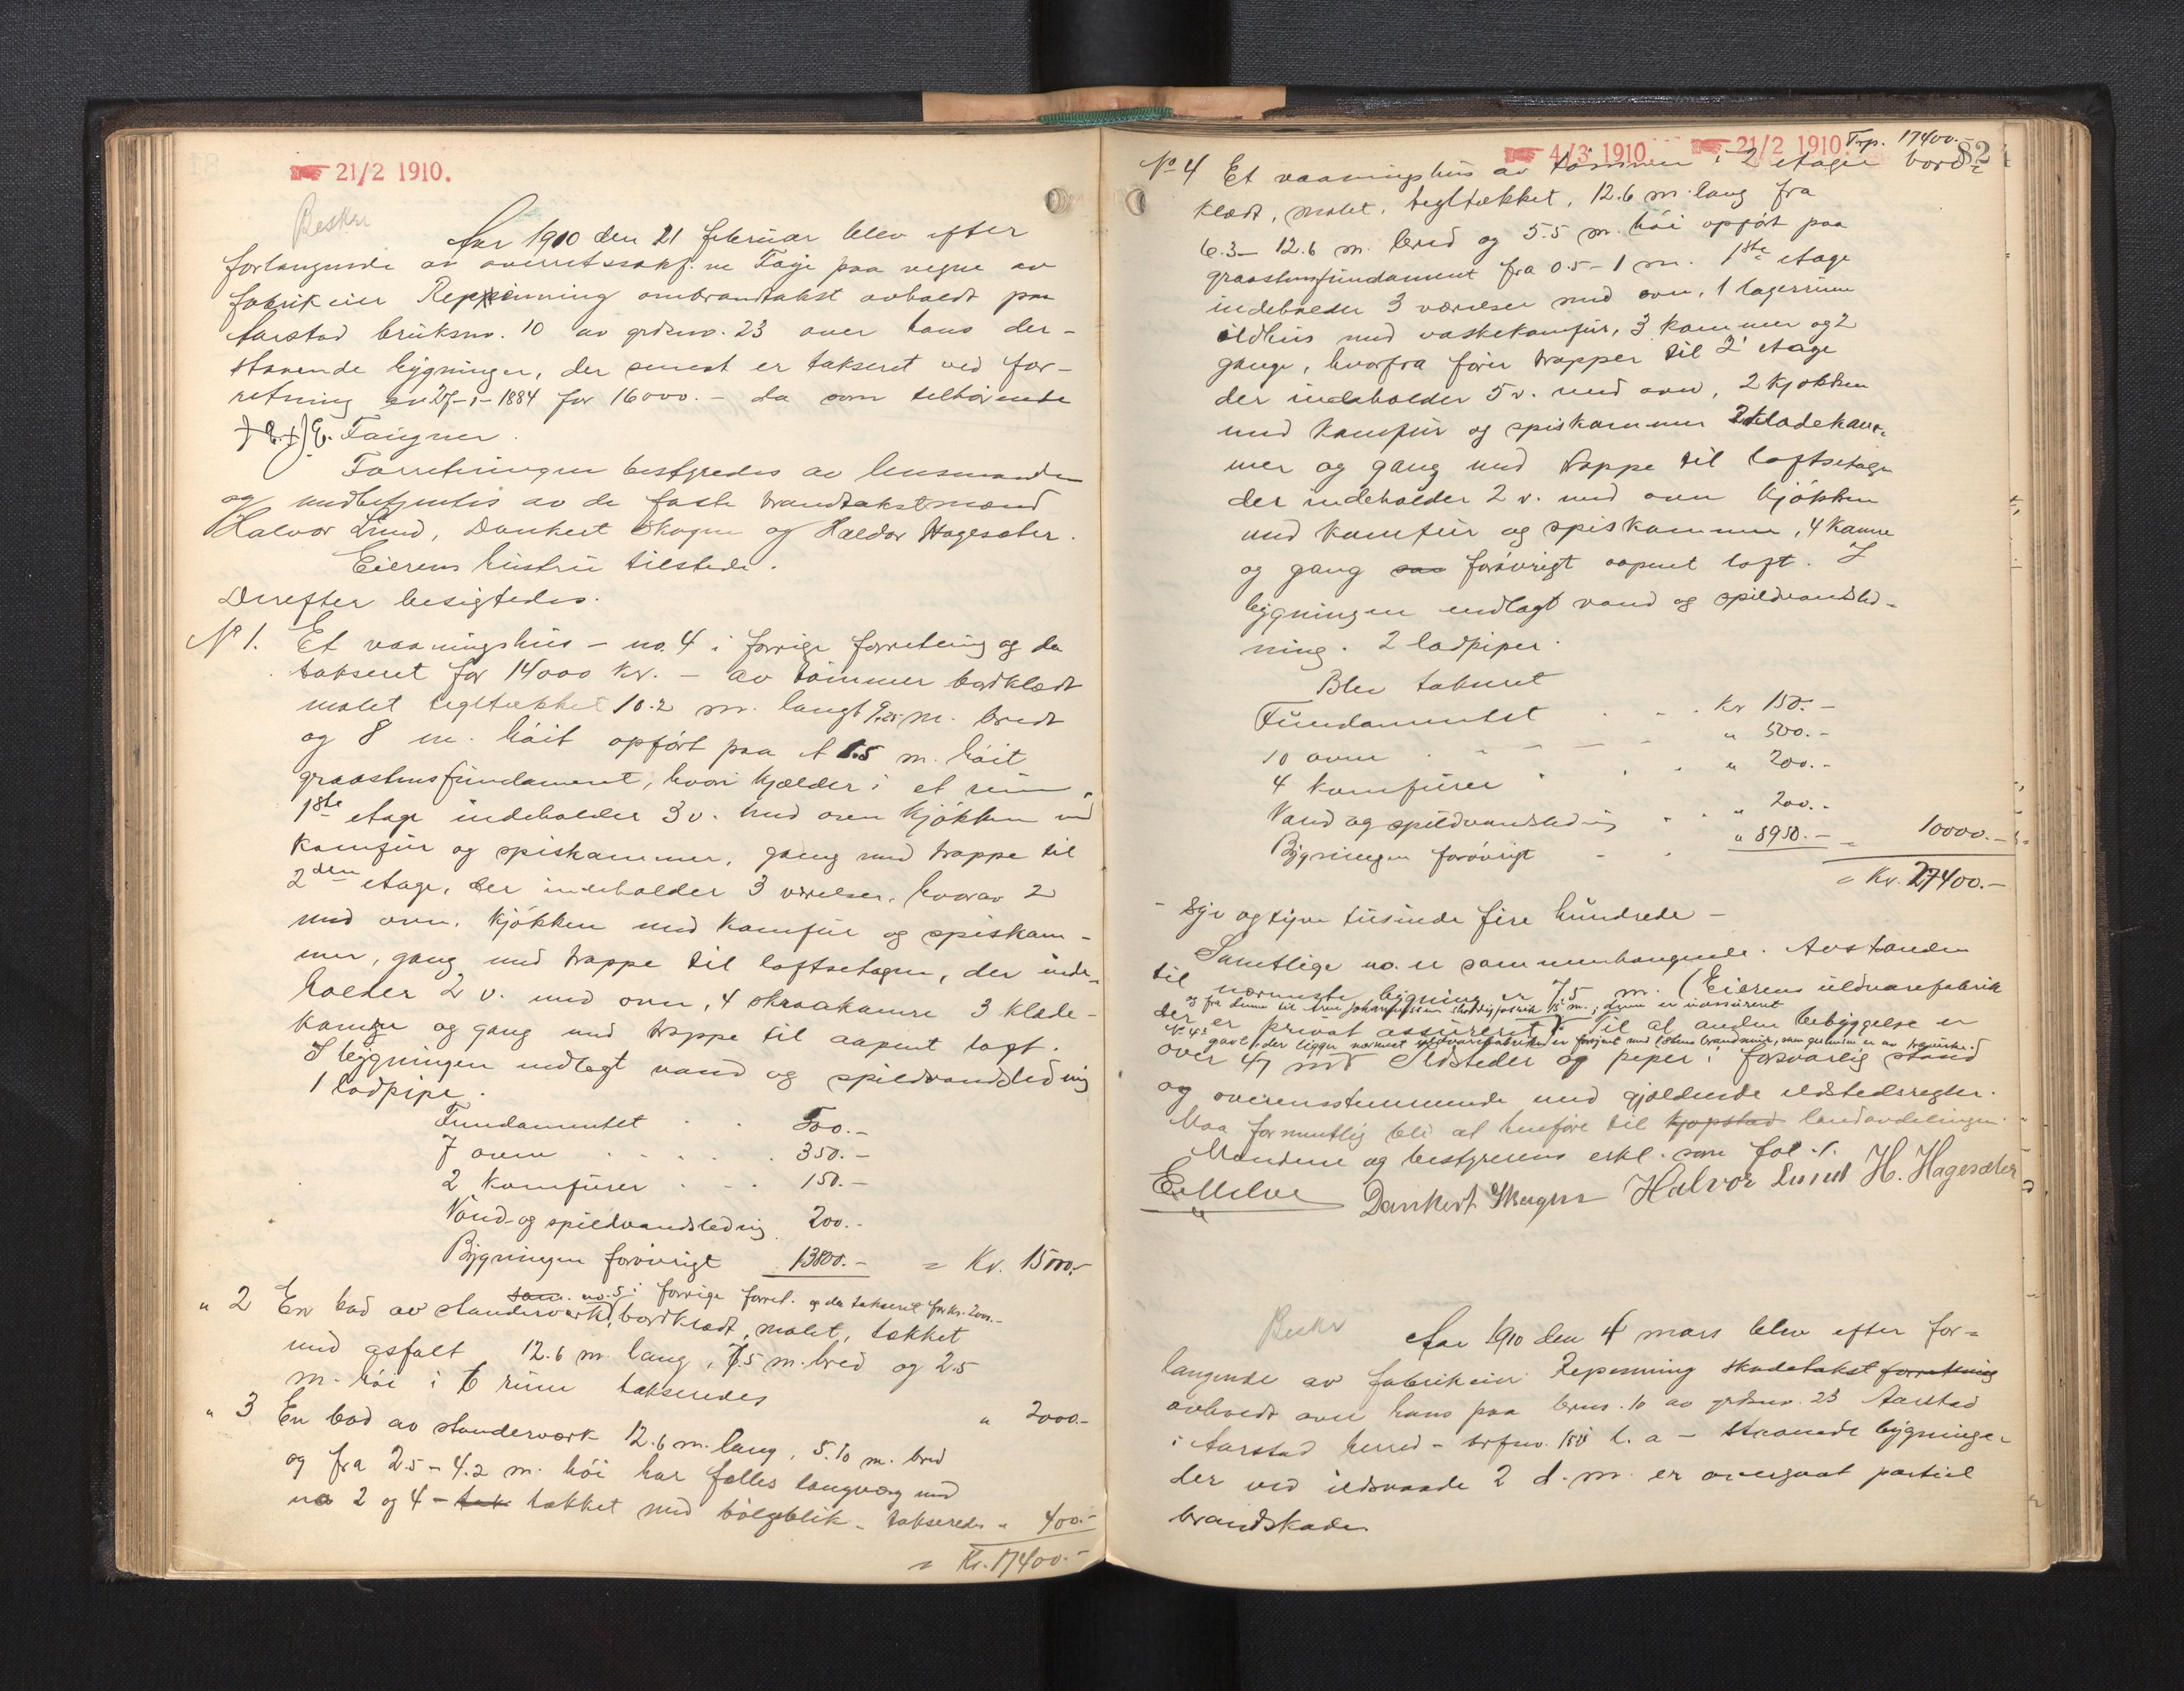 21/2 1910.
Beskr
Aar 1910 den 21 februar blev efter
forlangende av overretssakf. ne Faye paa vegne av
fabrikeier Reppenning ombrandtakst avholdt paa
Aarstad bruksno. 10 av grdsno. 23 over hans der-
staaende bygninger, der senest er takseret ved for-
retning av 27-1-1884 for 16000.- da som tilhørende
E. Faigner.
Forretningen bestyredes av lensmanden
og medbetjentes av de faste brandtakstmænd
Halvor Lund, Dankert Skagen og Haldor Hagesæter.
Eierens hustru tilstede.
Derefter besigtedes.
No 1. Et vaaningshus - no. 4 i forrige forretning og da
takseret for 14000 kr. - av tømmer bordklædt
malet tegltækket 10.2 m. langt 9.25 m. bredt
og 8 m. høit opført paa et 1.5 m. høit
graastensfundament, hvori kjælder i et rum,
1ste etage indeholder 3 v. med ovn kjøkken med
komfur og spiskammer, gang med trappe til
2den etage, der indeholder 3 værelser, hvorav 2
med ovn, kjøkken med komfur og spiskam-
mer, gang med trappe til loftsetagen, der inde-
holder 2 v. med ovn, 4 skraakamre 3 klæde-
kamre og gang med trappe til aapent loft.
I bygningen indlagt vand og spildvandsledning
1 ladpipe.
Fundamentet . . 500.-
7 ovne . . . . . 350.-
2 komfurer . . . 150.-
Vand- og spildvandsledning 200.-
Bygningen forøvrigt 13800.- = Kr. 15000.-
som. no. 5 i forrige forret. og da takseret for kr. 2000.-
" 2 En bod av standerverk, bordklædt, malet, tækket
med asfalt 12.6 m. lang, 7.5 m. bred og 2.5
m. høi i 6 rum takseredes " 2000.-
" 3 En bod av standerverk 12.6 m. lang, 5.10 m. bred
og fra 2.5 - 4.2 m. høi har fælles langvæg med
no 2 og 4 - tak tækket med bølgeblik - takseredes " 400.-
= Kr. 17400.-
4/3 1910 21/2 1910. Trp. 17400.- 82
No 4 Et vaaningshus av tømmer i 2 etager bord-
klædt, malet, tegltækket, 12.6 m. lang fra
6.3 - 12.6 m. bred og 5.5 m. høi opført paa
graastensfundament fra 0.5 - 1 m. 1ste etage
indeholder 3 værelser med ovn, 1 lagerrum
ildhus med vaskekomfur, 3 kammer og 2
gange, hvorfra fører trapper til 2' etage
der indeholder 5 v. med ovn, 2 kjøkken
med komfur og spiskammer 2 klædekam-
mer og gang med trappe til loftsetagen
der indeholder 2 v. med ovn kjøkken
med komfur og spiskammer, 4 kamre
og gang saa forøvrigt aapent loft. I
bygningen indlagt vand og spildvandsled-
ning. 2 ladpiper.
Blev takseret
Fundamentet . . . Kr 150.-
10 ovne " 500.-
4 komfurer " 200.-
Vand og spildvandsledning " 200.-
Bygningen forøvrigt " 8950.- = 10000.-
= Kr. 27400.-
- Syv og tyve tusinde fire hundrede -
Samtlige no. er sammenhængende. Avstanden
til nærmeste bygning er 7.5 m. (Eierens uldvarefabrik
og fra denne til Arne Johannessens skoddyfabrik 15 m., denne er uassureret
der er privat assureret). Til al anden bebyggelse er
No 4's gavl, der ligger nærmest uldvarefabriken er forsynt med tætnet brandmur, som gesimsen er av træværk.
over 47 m. Ildsteder og piper i forsvarlig stand
og overensstemmende med gjældende ildstedsregler.
Maa formentlig bli at henføre til kjøpstad landavdelingen.
Mændene og bestyrerens erkl. som fol. 1.
Dankert Skagen Halvor Lund H. Hagesæter
Beskr
Aar 1910 den 4 mars blev efter for-
langende av fabrikeier Repenning skadetakst forretning
avholdt over hans paa brno. 10 av grdsno. 23 Aarstad
i Aarstad herred - brfno. 150 l. a - staaende bygninger
der ved ildsvaade 2 d. m. er overgaat partiel
brandskade.